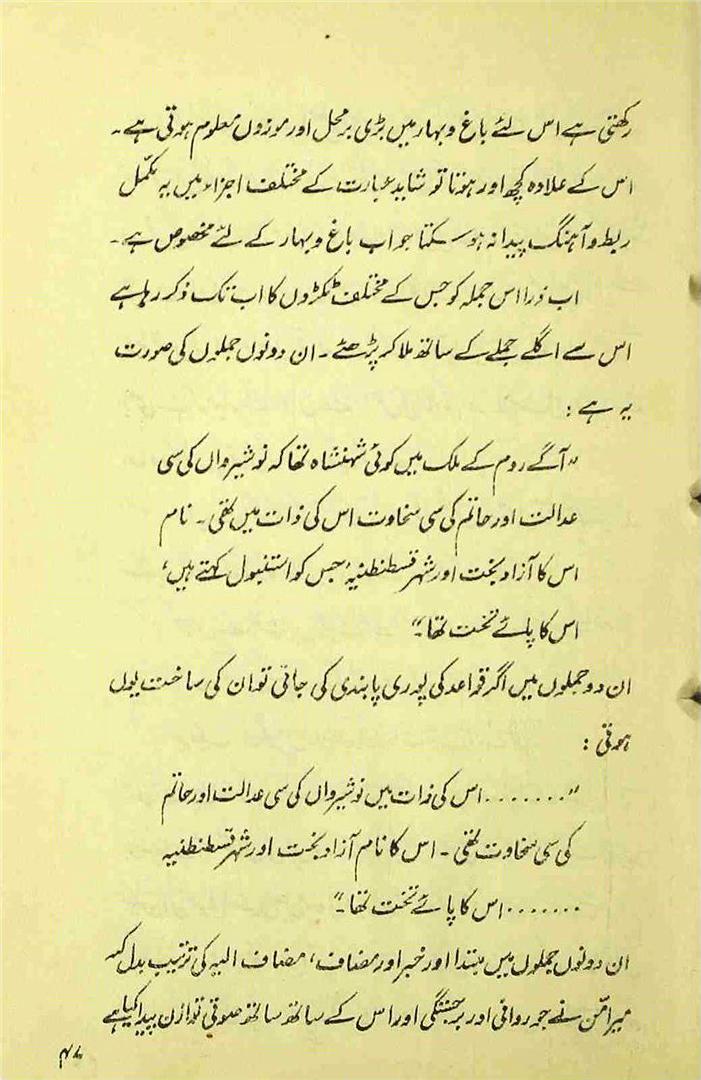 رکھتی ہے اس لئے باغ و بہار میں بڑی برمحل اور موزوں معلوم ہوتی ہے ۔
اس کے علاوہ کچھ اور ہوتا تو شاید عبارت کے مختلف اجزاء میں یہ مکمّل
ربط و آہنگ پیدا نہ ہو سکتا جو اب باغ و بہار کے لئے مخصوص ہے ۔
اب ذرا اس جملہ کو جس کے مختلف ٹکڑوں کا اب تک ذکر رہا ہے
اس سے اگلے جملے کے ساتھ ملا کر پڑھئے ۔ ان دونوں جملوں کی صورت
یہ ہے :
”آگے روم کے ملک میں کوئی شہنشاہ تھا کہ نوشیرواں کی سی
عدالت اور حاتم کی سی سخاوت اس کی ذات میں تھی ۔ نام
اس کا آزاد بخت اور شہر قسطنطنیہ جس کو استنبول کہتے ہیں،
اس کا پائے تخت تھا ۔“
ان دو جملوں میں اگر قواعد کی پوری پابندی کی جاتی تو ان کی ساخت یوں
ہوتی :
”....... اس کی ذات میں نوشیرواں کی سی عدالت اور حاتم
کی سی سخاوت تھی ۔ اس کا نام آزاد بخت اور شہر قسطنطنیہ
....... اس کا پائے تخت تھا ۔“
ان دونوں جملوں میں مبتدا اور خبر اور مضاف، مضاف الیہ کی ترتیب بدل کر
میر امّن نے جو روانی اور برجستگی اور اس کے ساتھ ساتھ صوتی توازن پیدا کیا ہے
۴۷